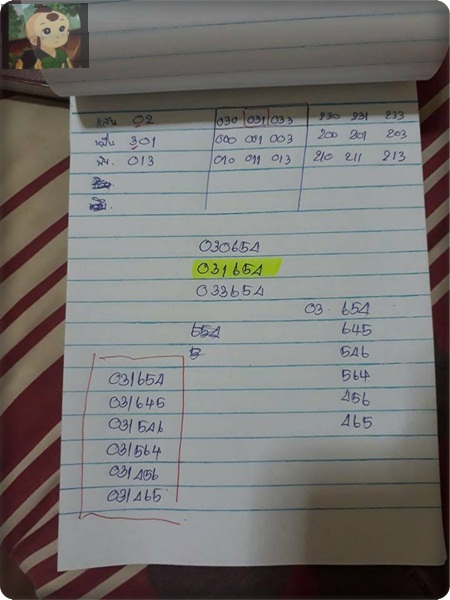 แสน 02 030 031 033 230 231 233
หมื่น 301 000 001 003 200 201 203
พัน. 013 010 011 013 210 211 213
030654
031654
033654
03 654
654 645
5 546
031654 564
031645 456
031546 465
031564
031456
031465